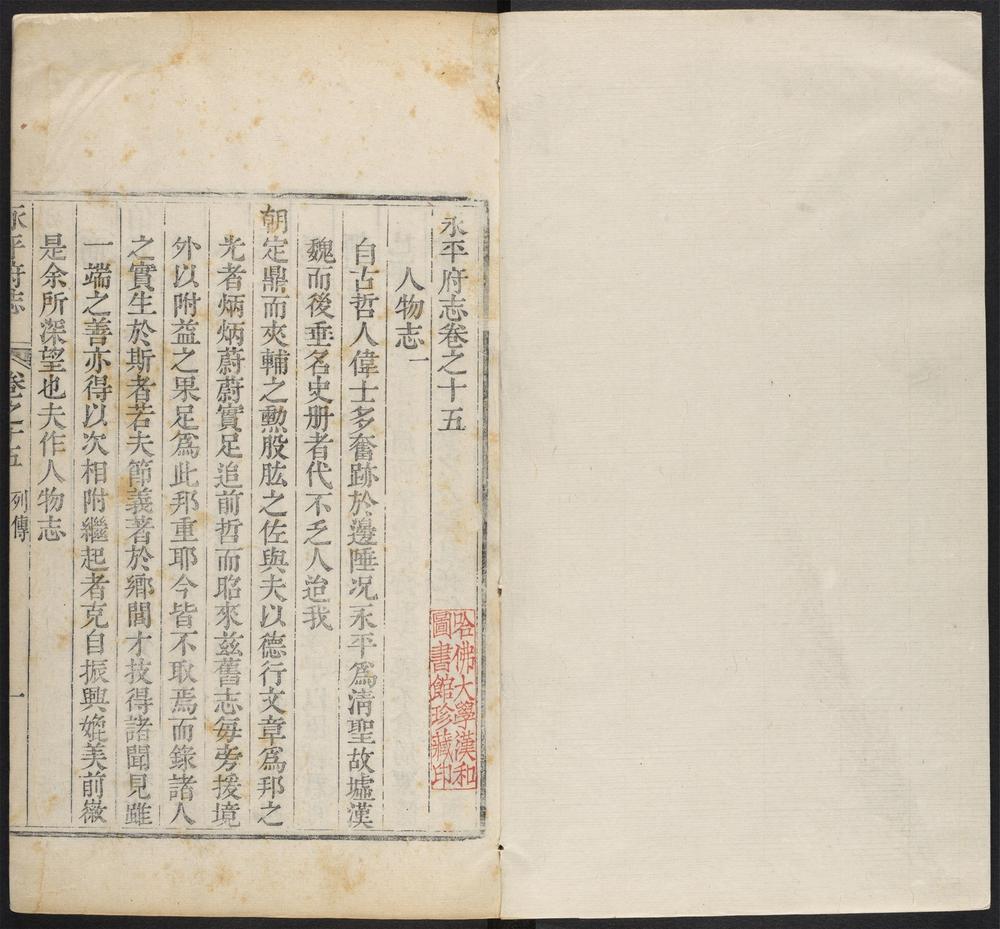 永平府志卷之十五
人物志一
自古哲人偉士多奮跡於邊陲况永平爲清聖故墟漢
魏而後垂名史册者代不乏人迨我
朝定鼎而夾輔之勲股肱之佐與夫以德行文章爲邦之
光者炳炳蔚蔚實足追前哲而昭來兹舊志每旁援境
外以附益之果足爲此邦重耶今皆不取焉而錄諸人
之實生於斯者若夫節義著於鄉閭才技得諸聞見雖
一端之善亦得以次相附繼起者克自振興媲美前徽
是余所深望也夫作人物志
永平府志
卷之十五
列傳
一
哈佛大學漢和
圖書館珍藏印